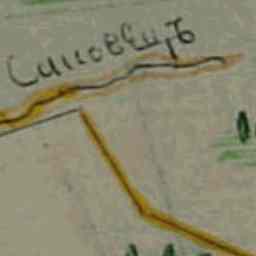 Синовецъ